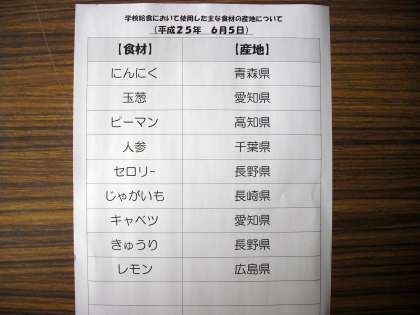 学校給食において使用した主な食材の産地について
（平成２５年　６月５日）
【食材】 【産地】
にんにく 青森県
玉葱 愛知県
ピーマン 高知県
人参 千葉県
セロリｰ 長野県
じゃがいも 長崎県
キャベツ 愛知県
きゅうり 長野県
レモン 広島県